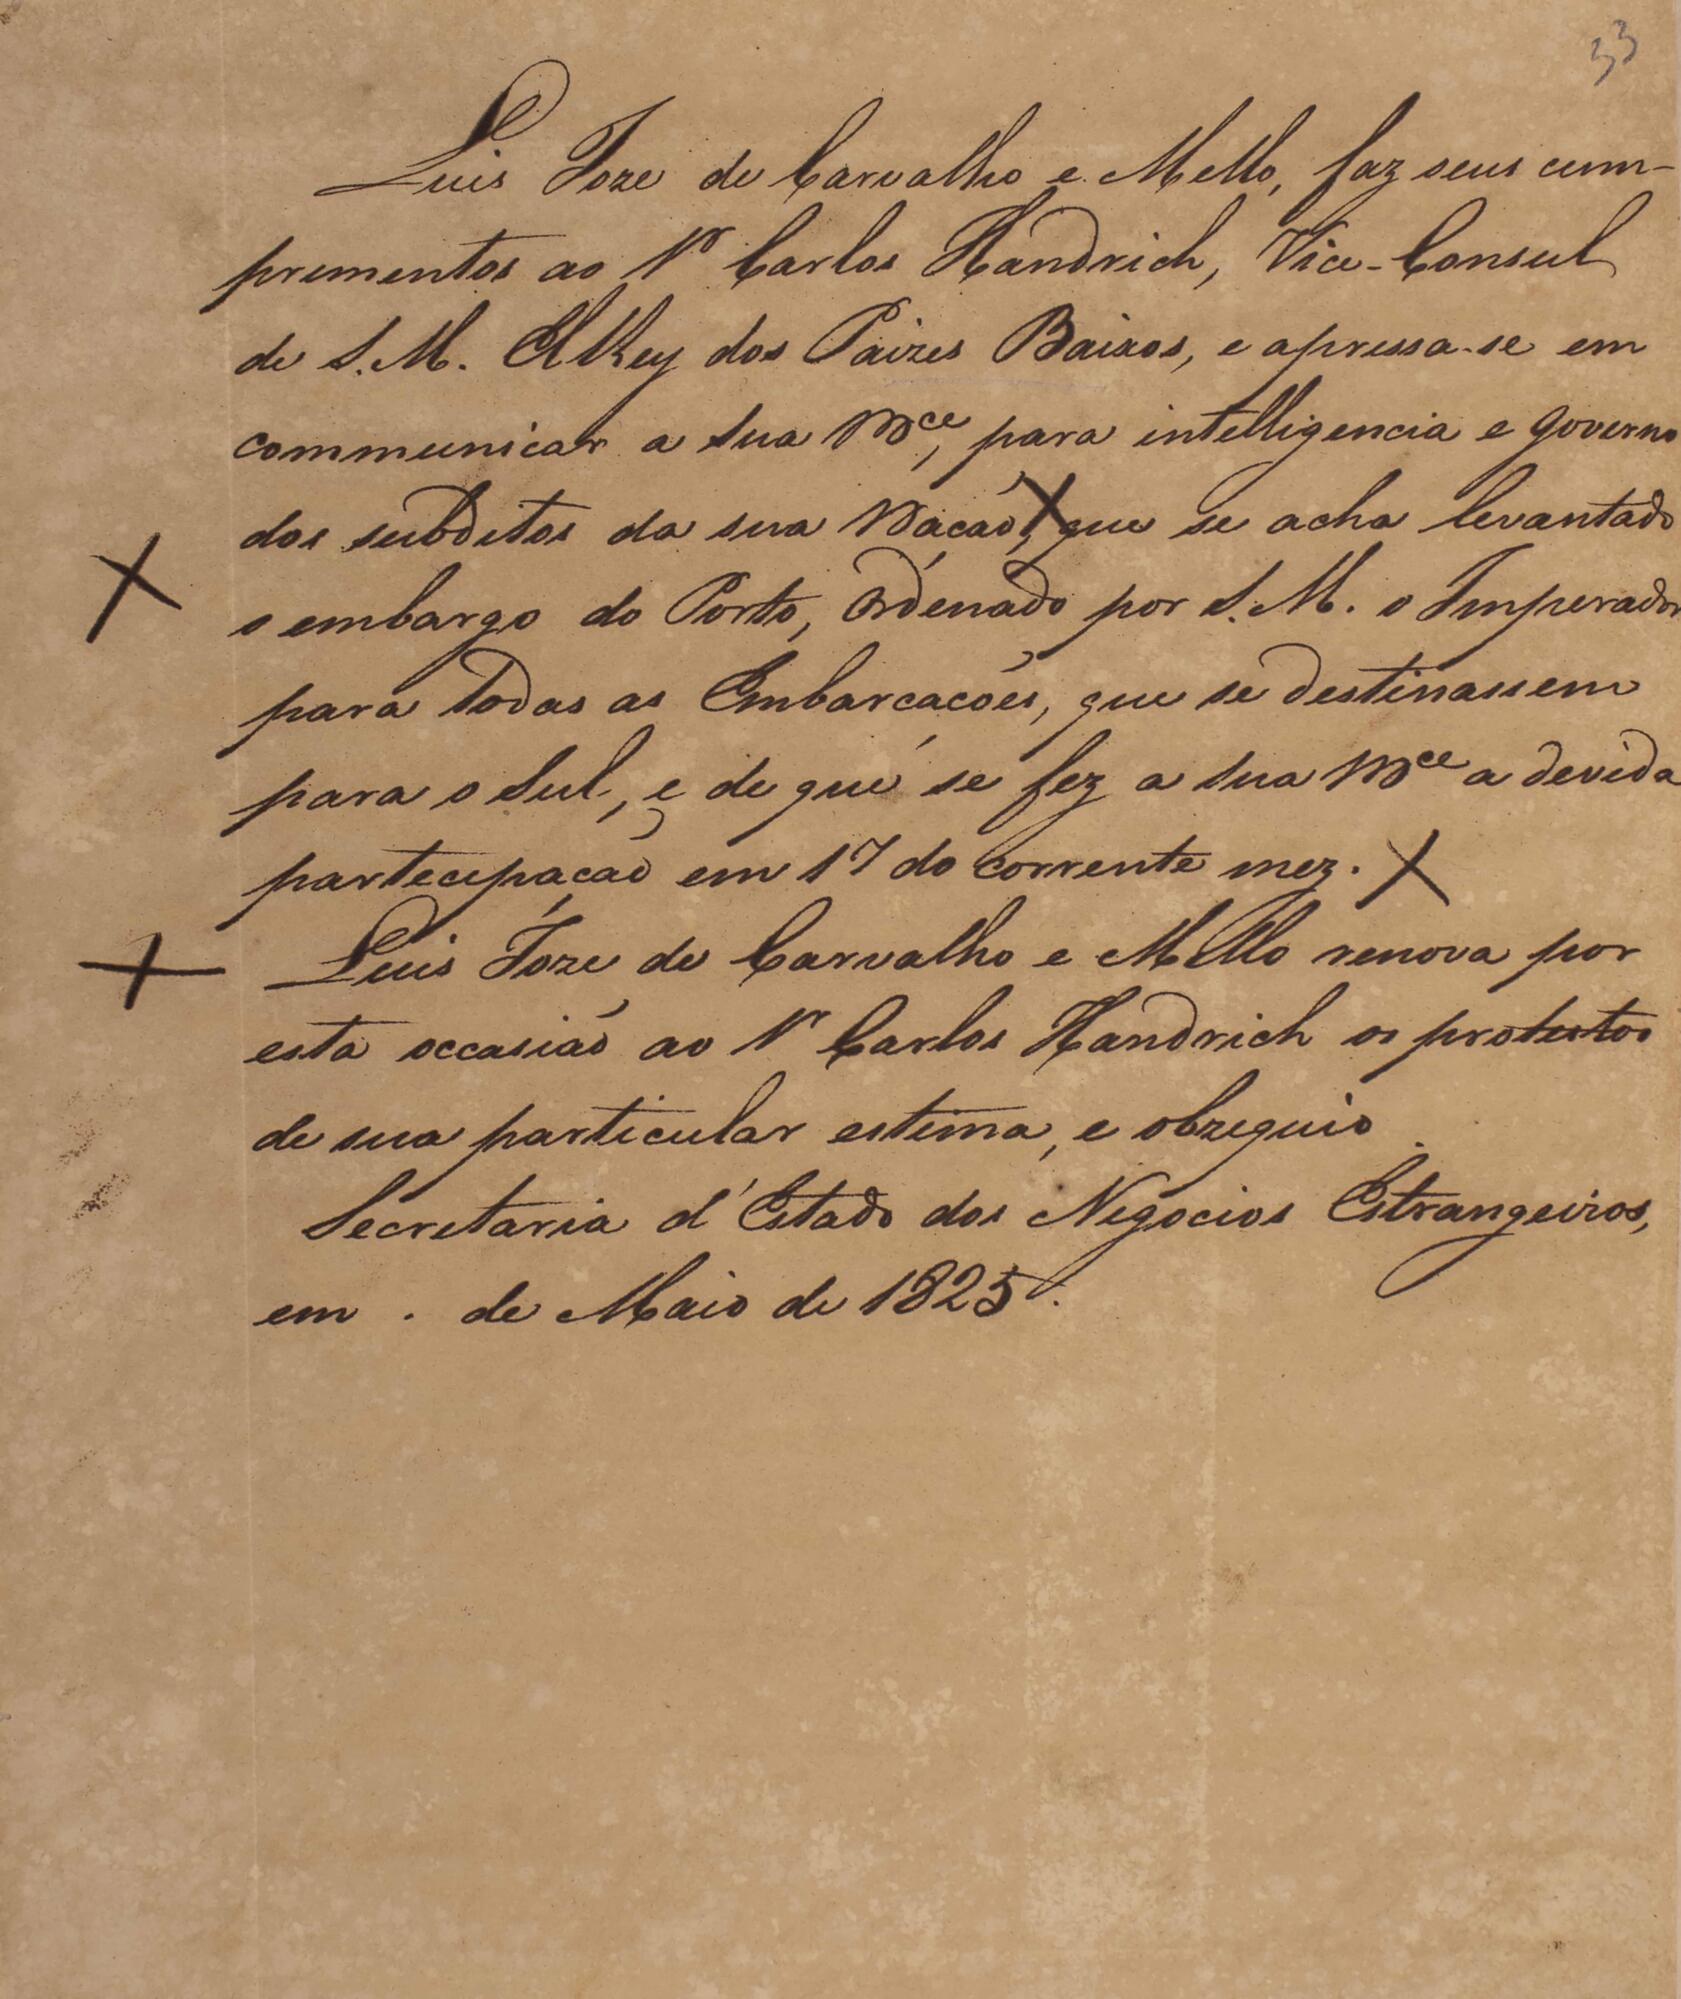 33
Luis Joze de Carvalho e Mello, faz seus cum-
prementos ao Sr Carlos Handrich, Vice-Consul
de S.M. ElRey dos Paizes Baixos, e apressa-se em
communicar a sua Mce, para intelligencia e governo
dos subditos da sua Nação, que se acha levantado
o embargo do Porto, ordenado por S.M. o Imperador
para todas as Embarcações, que se destinassem
para o Sul, e de que se fez a sua Mce a devida
partecipação em 17 do corrente mez.
Luis Joze de Carvalho e Mello renova por
esta occasião ao Sr Carlos Handrich os protestos
de sua particular estima, e obzequio.
Secretaria d'Estado dos Negocios Estrangeiros,
em . de Maio de 1825.